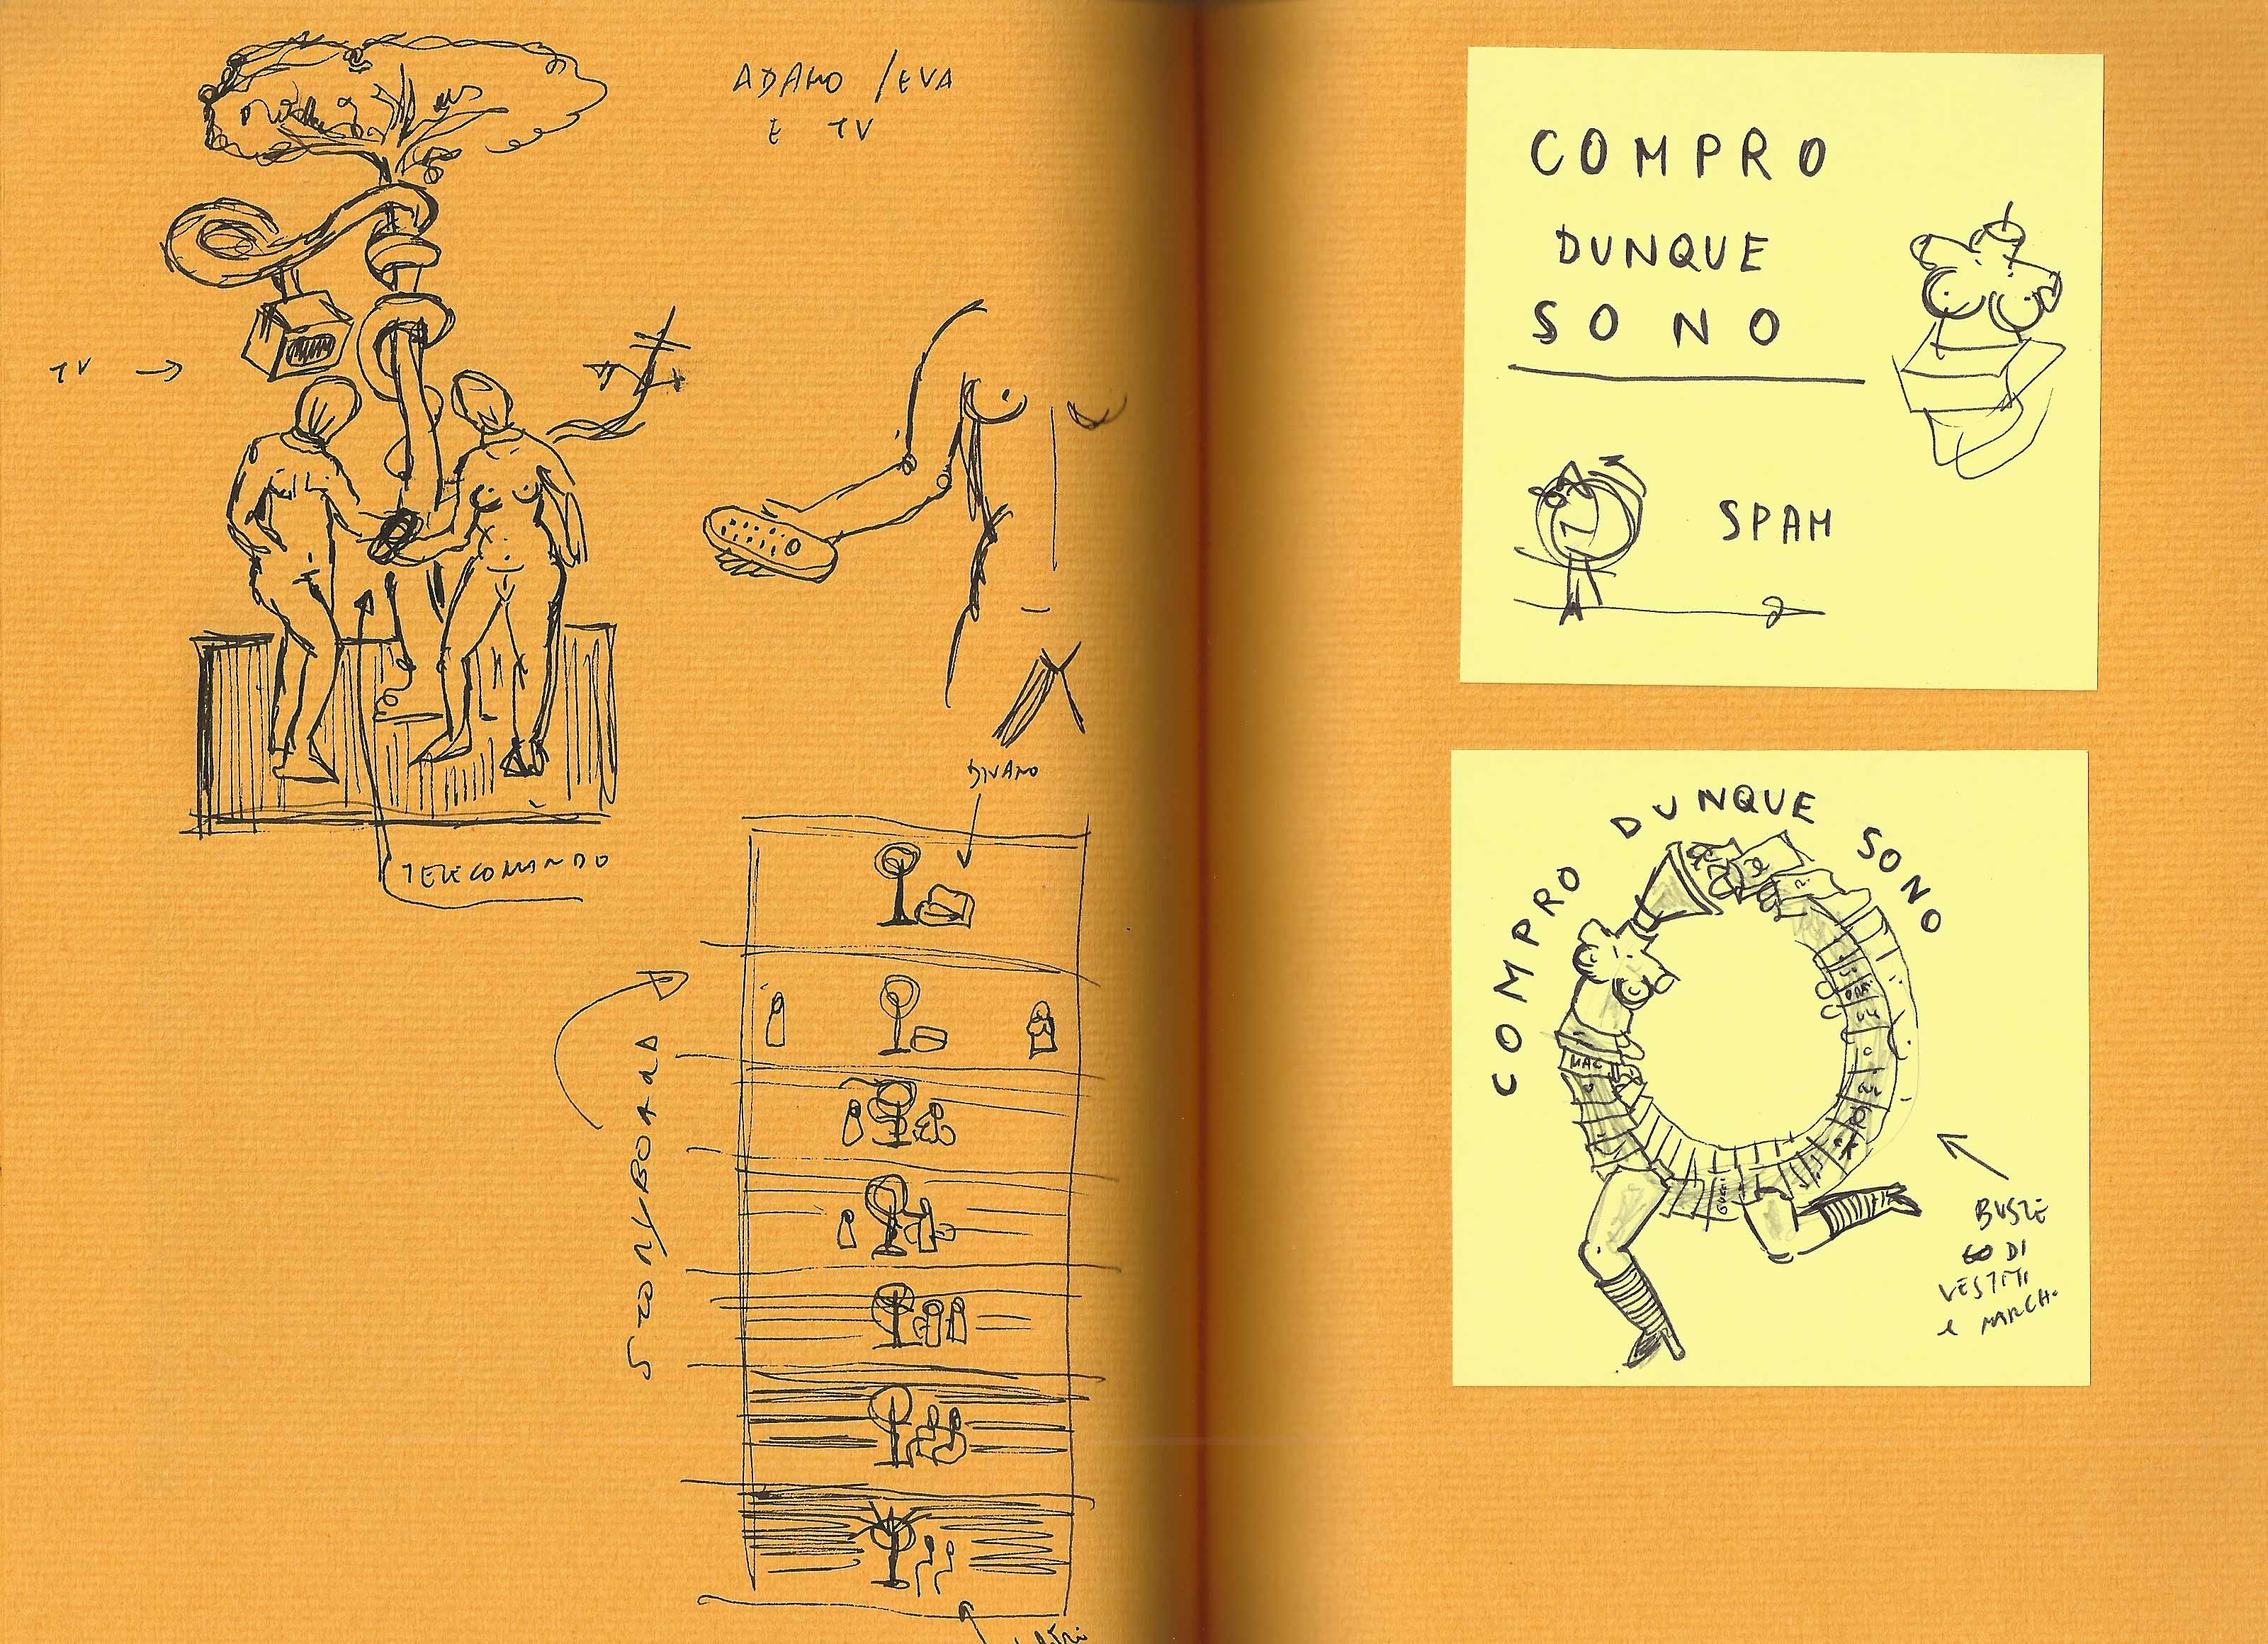 ADAMO / EVA
E TV
TV
TELECOMANDO
DIVANO
STORYBOARD
COMPRO
DUNQUE
SONO
SPAM
COMPRO DUNQUE SONO
BUSTE
DI
VESTITI
E MARCH.